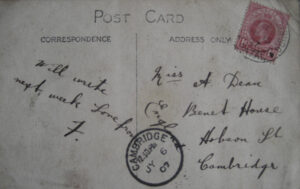 POST CARD
CORRESPONDENCE
ADDRESS ONLY
Will write
next week Love from
F.
Miss A Dean
Benet House
Hobson St
Cambridge
England
CAMBRIDGE
JY 6
07